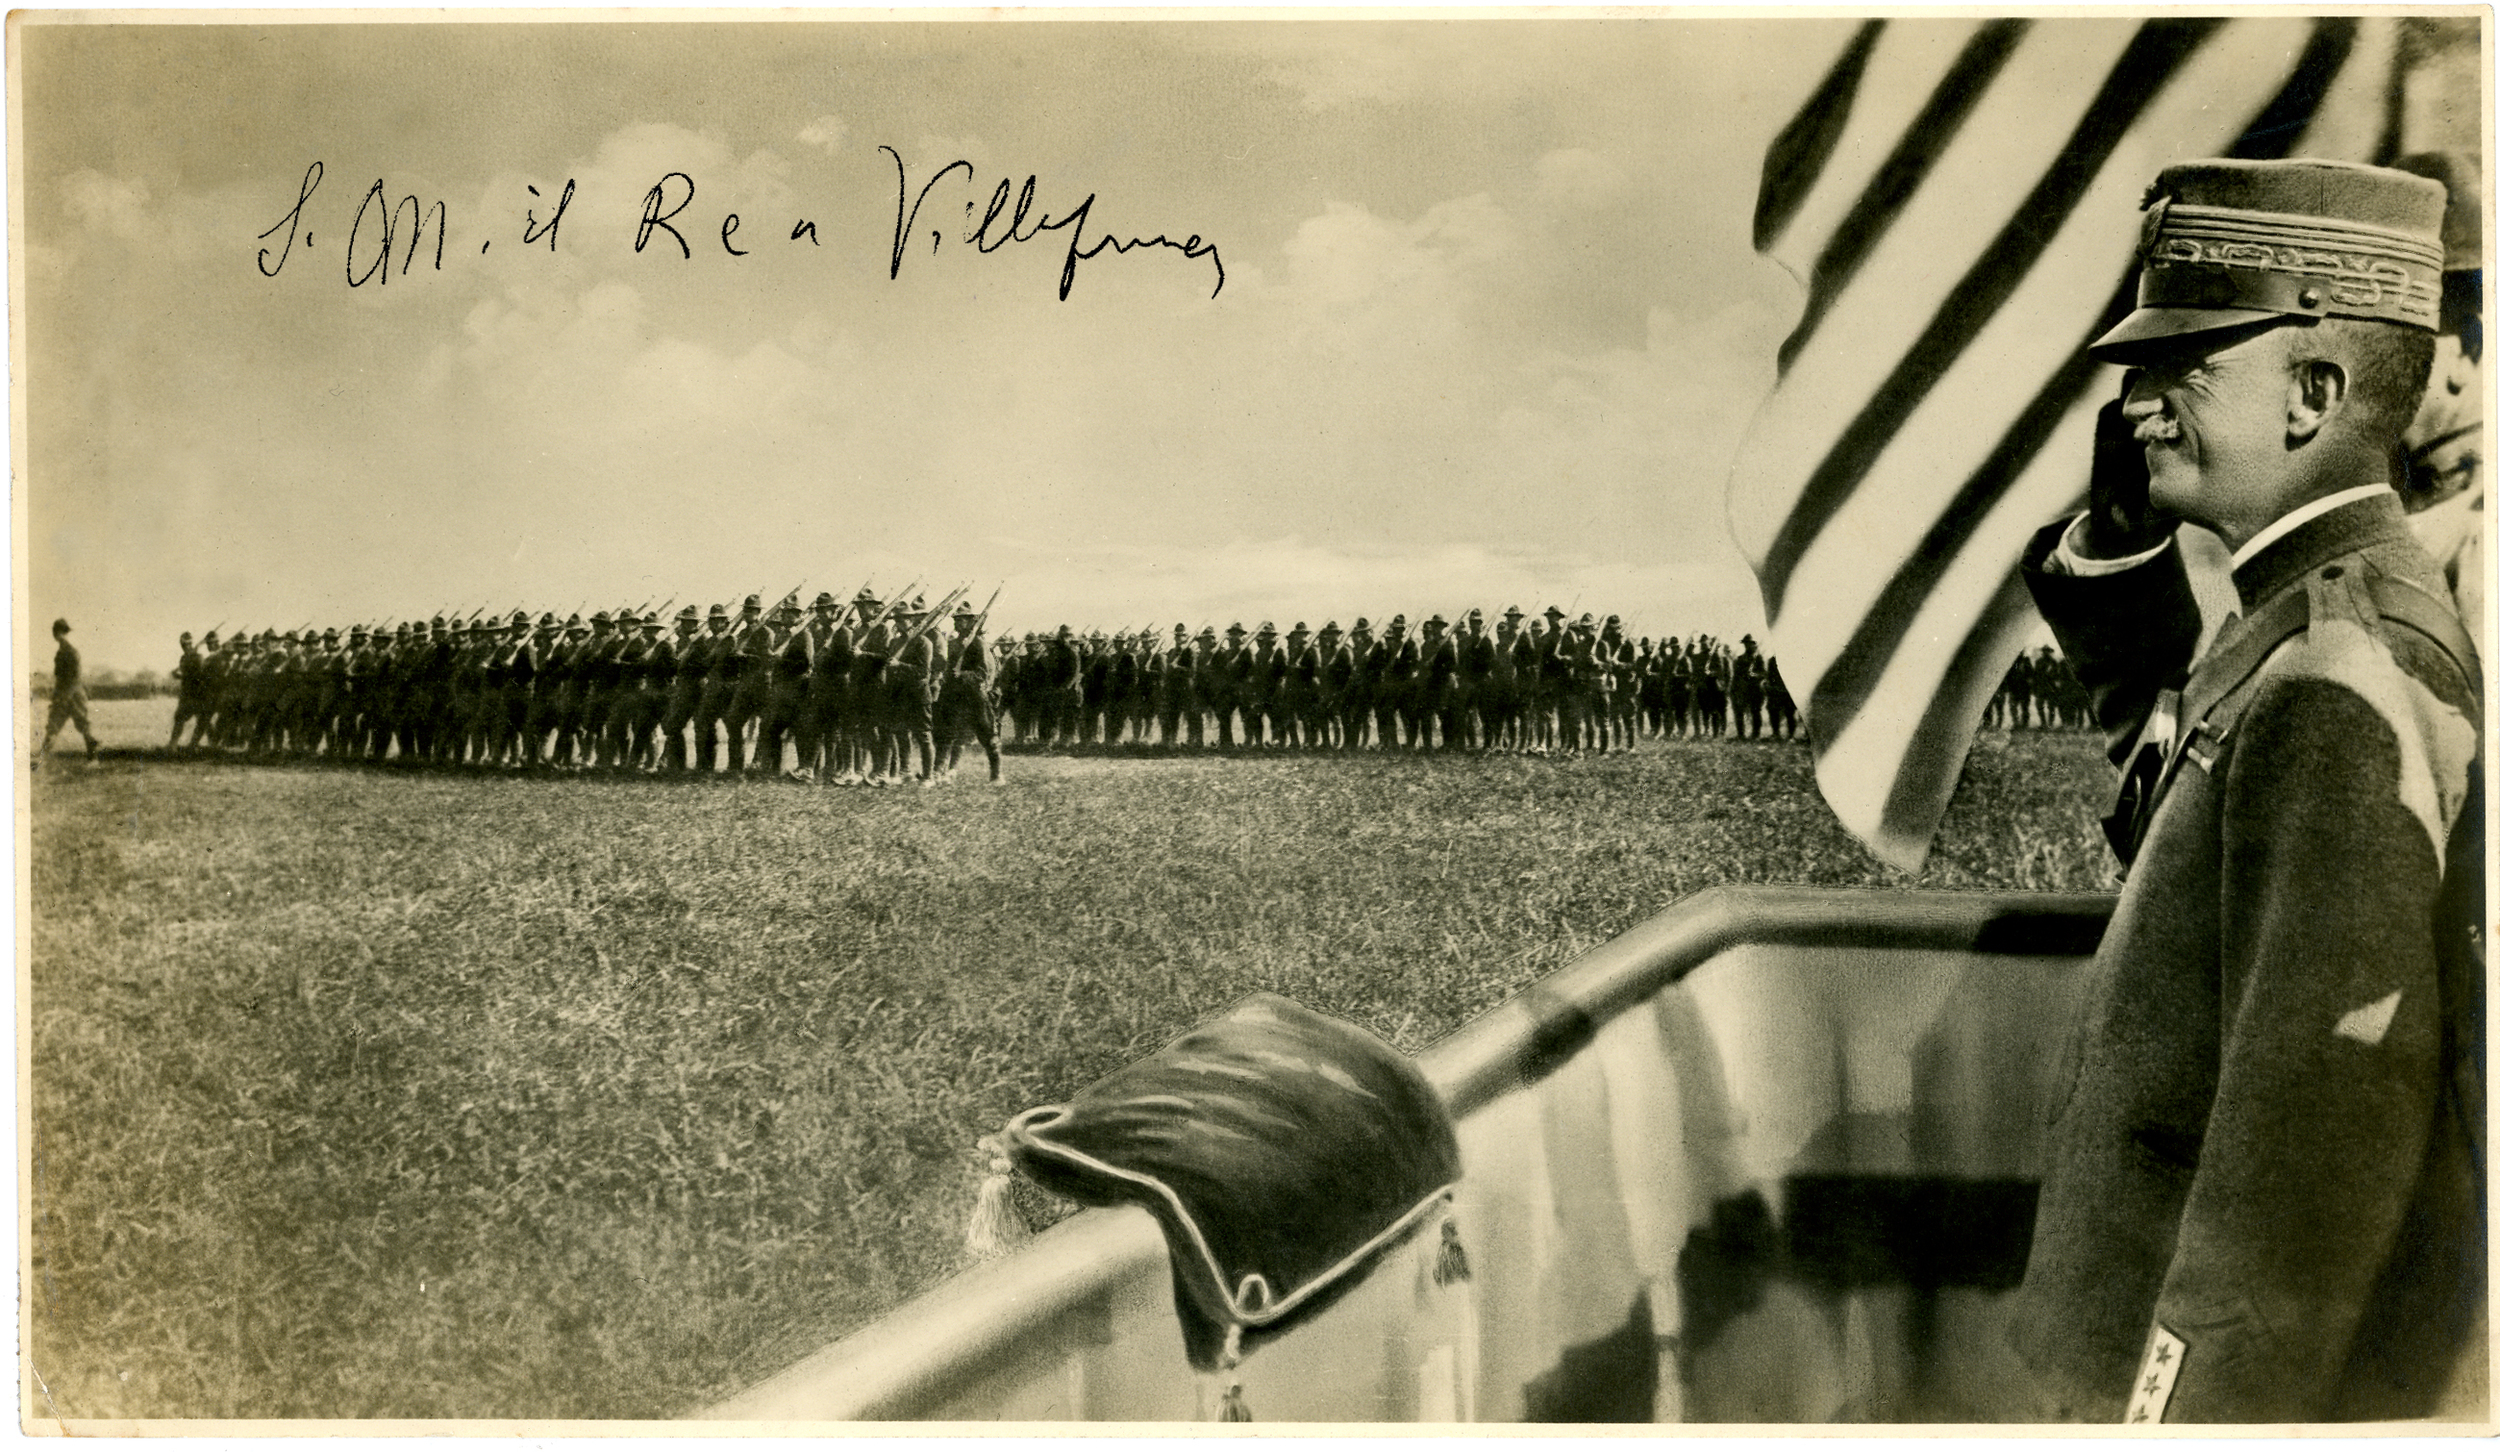 S. M. il Re a Villafranca